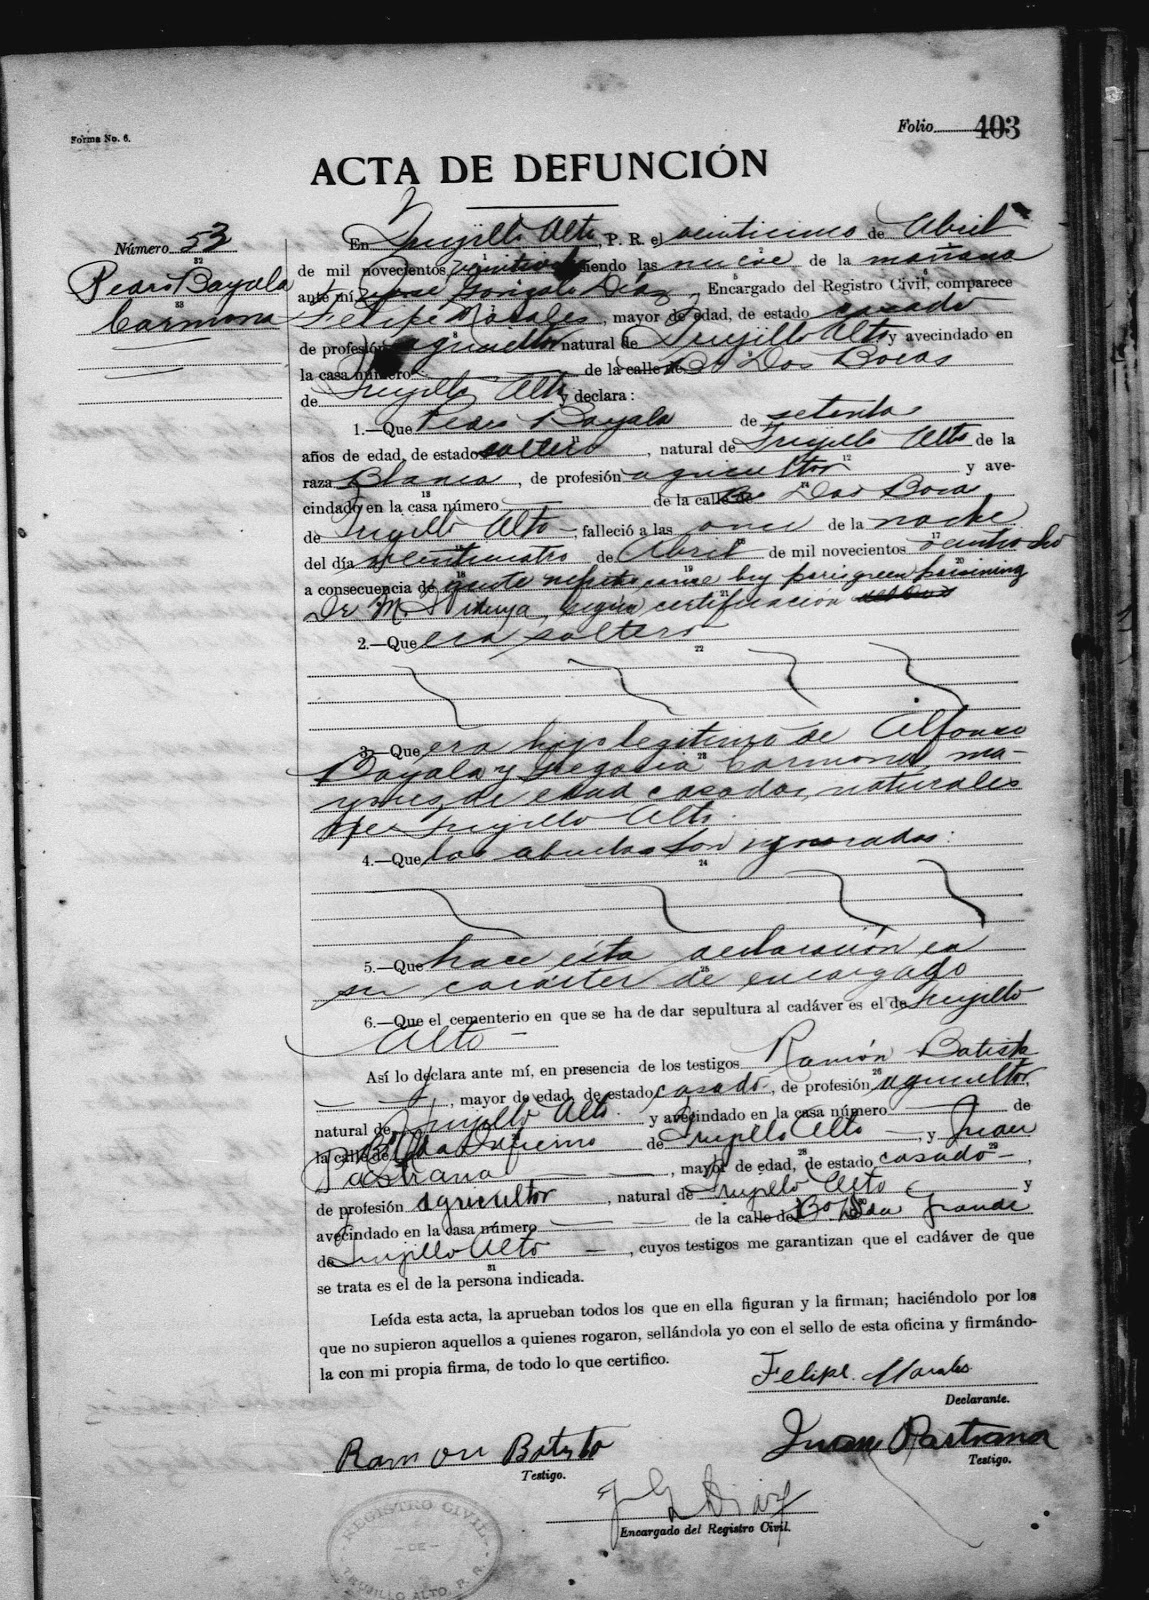 Forma No. 6.
Folio 403
ACTA DE DEFUNCIÓN
Número 53
Pedro Bayala
Carmona
En Trujillo Alto, P. R. el veinticinco de Abril
de mil novecientos veintiocho siendo las nueve de la mañana
ante mí, José González Díaz, Encargado del Registro Civil, comparece
Felipe Morales, mayor de edad, de estado casado
de profesión agricultor natural de Trujillo Alto y avecindado en
la casa número de la calle de Bo Dos Bocas
de Trujillo Alto y declara:
1.—Que Pedro Bayala de setenta
años de edad, de estado soltero, natural de Trujillo Alto de la
raza Blanca, de profesión agricultor y ave-
cindado en la casa número de la calle Bo Dos Boca
de Trujillo Alto, falleció a las once de la noche
del día veinticuatro de Abril de mil novecientos veintiocho
a consecuencia de aguda nefritis cause by paris green poisining
Dr. M. , según certificación
2.—Que era soltero
3.—Que era hijo legitimo de Alfonso
Bayala y Gregoria Carmona, ma-
yores de edad casados, naturales
de Trujillo Alto.
4.—Que los abuelos son ignorados.
5.—Que hace esta declaración en
su carácter de encargado
6.—Que el cementerio en que se ha de dar sepultura al cadáver es el de Trujillo
Alto
Así lo declara ante mí, en presencia de los testigos Ramón Batista
, mayor de edad, de estado casado, de profesión agricultor,
natural de Trujillo Alto. y avecindado en la casa número de
la calle de de Trujillo Alto, y Juan
Pastrana, mayor de edad, de estado casado,
de profesión agricultor, natural de Trujillo Alto y
avecindado en la casa número de la calle de Bo Qda Grande
de Trujillo Alto, cuyos testigos me garantizan que el cadáver de que
se trata es el de la persona indicada.
Leída esta acta, la aprueban todos los que en ella figuran y la firman; haciéndolo por los
que no supieron aquellos a quienes rogaron, sellándola yo con el sello de esta oficina y firmándo-
la con mi propia firma, de todo lo que certifico.
Felipe Morales
Declarante.
Ramon Batista
Testigo.
Juan Pastrana
Testigo.
J G Diaz
Encargado del Registro Civil.
REGISTRO CIVIL
DE
TRUJILLO ALTO, P. R.